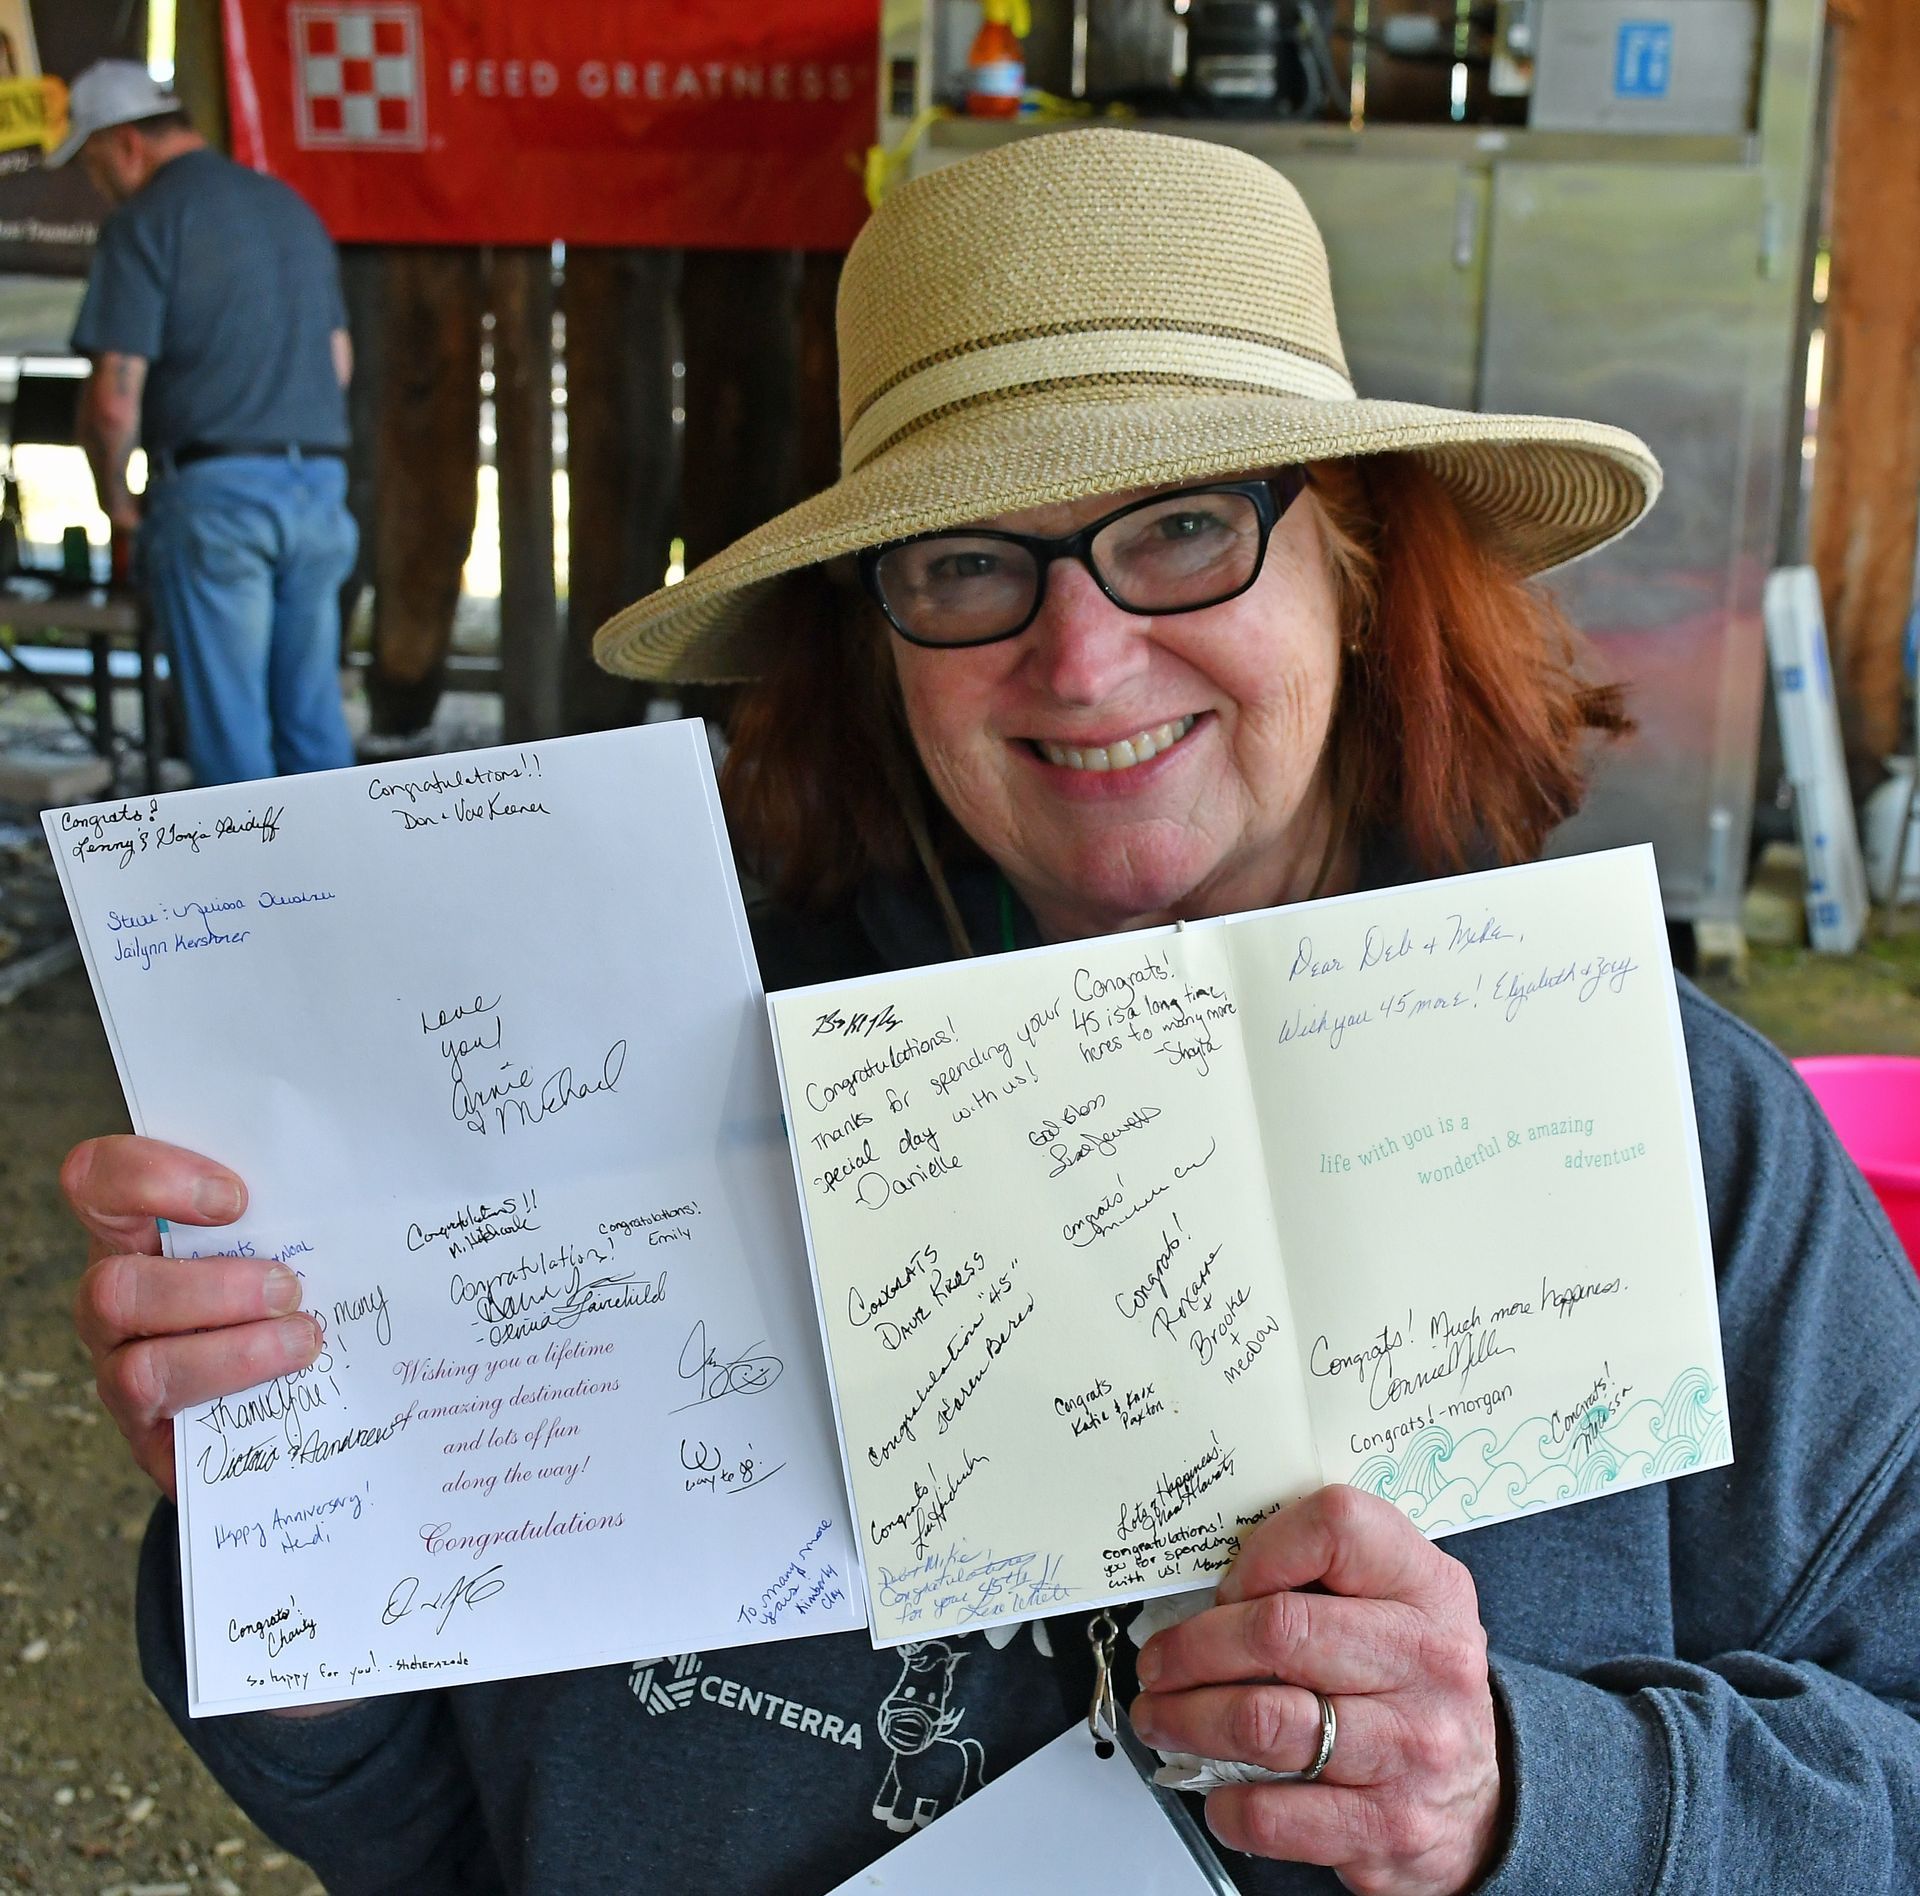 FEED GREATNESS
Congrats!
Lenny & Tonja
Congratulations!!
Don + Val Keener
Steve & Melissa
Jailynn Kershner
Love
you!
Annie
& Michael
Congrats
Congratulations!!
Congratulations!
David
Fairchild
Congratulations!
Emily
many
Thank you!
Victoria & Aandrew
Wishing you a lifetime
of amazing destinations
and lots of fun
along the way!
Congratulations
way to go!
Happy Anniversary!
Heidi
Congrats!
Charity
So happy for you! -Sheherazade
To many more
years!
Kimberly
Clay
Congratulations!
Thanks for spending your
special day with us!
-Danielle
Congrats!
45 is a long time,
heres to many more
-Shayla
God Bless
Congrats!
CONGRATS
DAVE KRESS
Congratulations "45"
Karen Beres
Congrats!
Roxanne
+
Brooke
+
meadow
Congrats
Katie & Knox
Paxton
Congrats!
Lots of Happiness!
Congratulations!
you for spending
with us!
Dear Mike,
Congratulations
for your 45th!!
White
Dear Deb + Mike,
Wish you 45 more! Elizabeth & Zoey
life with you is a
wonderful & amazing
adventure
Congrats! Much more happiness.
Connie Miller
Congrats! -morgan
Congrats!
Melissa
CENTERRA